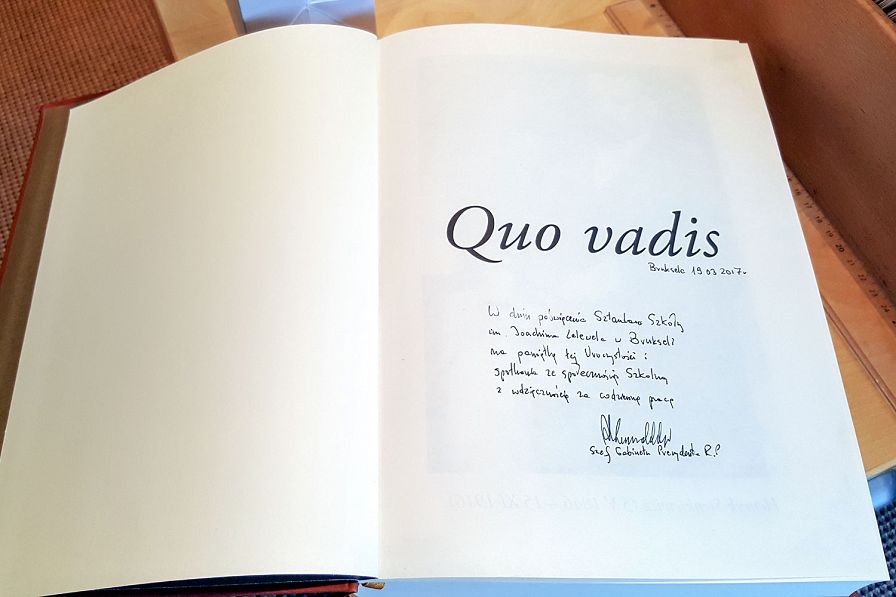 Quo vadis
Bruksela 19 03 2017r
W dniu poświęcenia Sztandaru Szkoły
im. Joachima Lelewela w Brukseli
na pamiątkę tej Uroczystości i
spotkania ze społecznością Szkolną
z wdzięcznością za codzienną pracę
Szef Gabinetu Prezydenta R.P
16
17
18
19
20
21
22
23
24